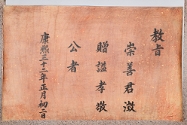 教旨
崇善君瀓
贈諡孝敬
公者
康熙三十二年正月初二日